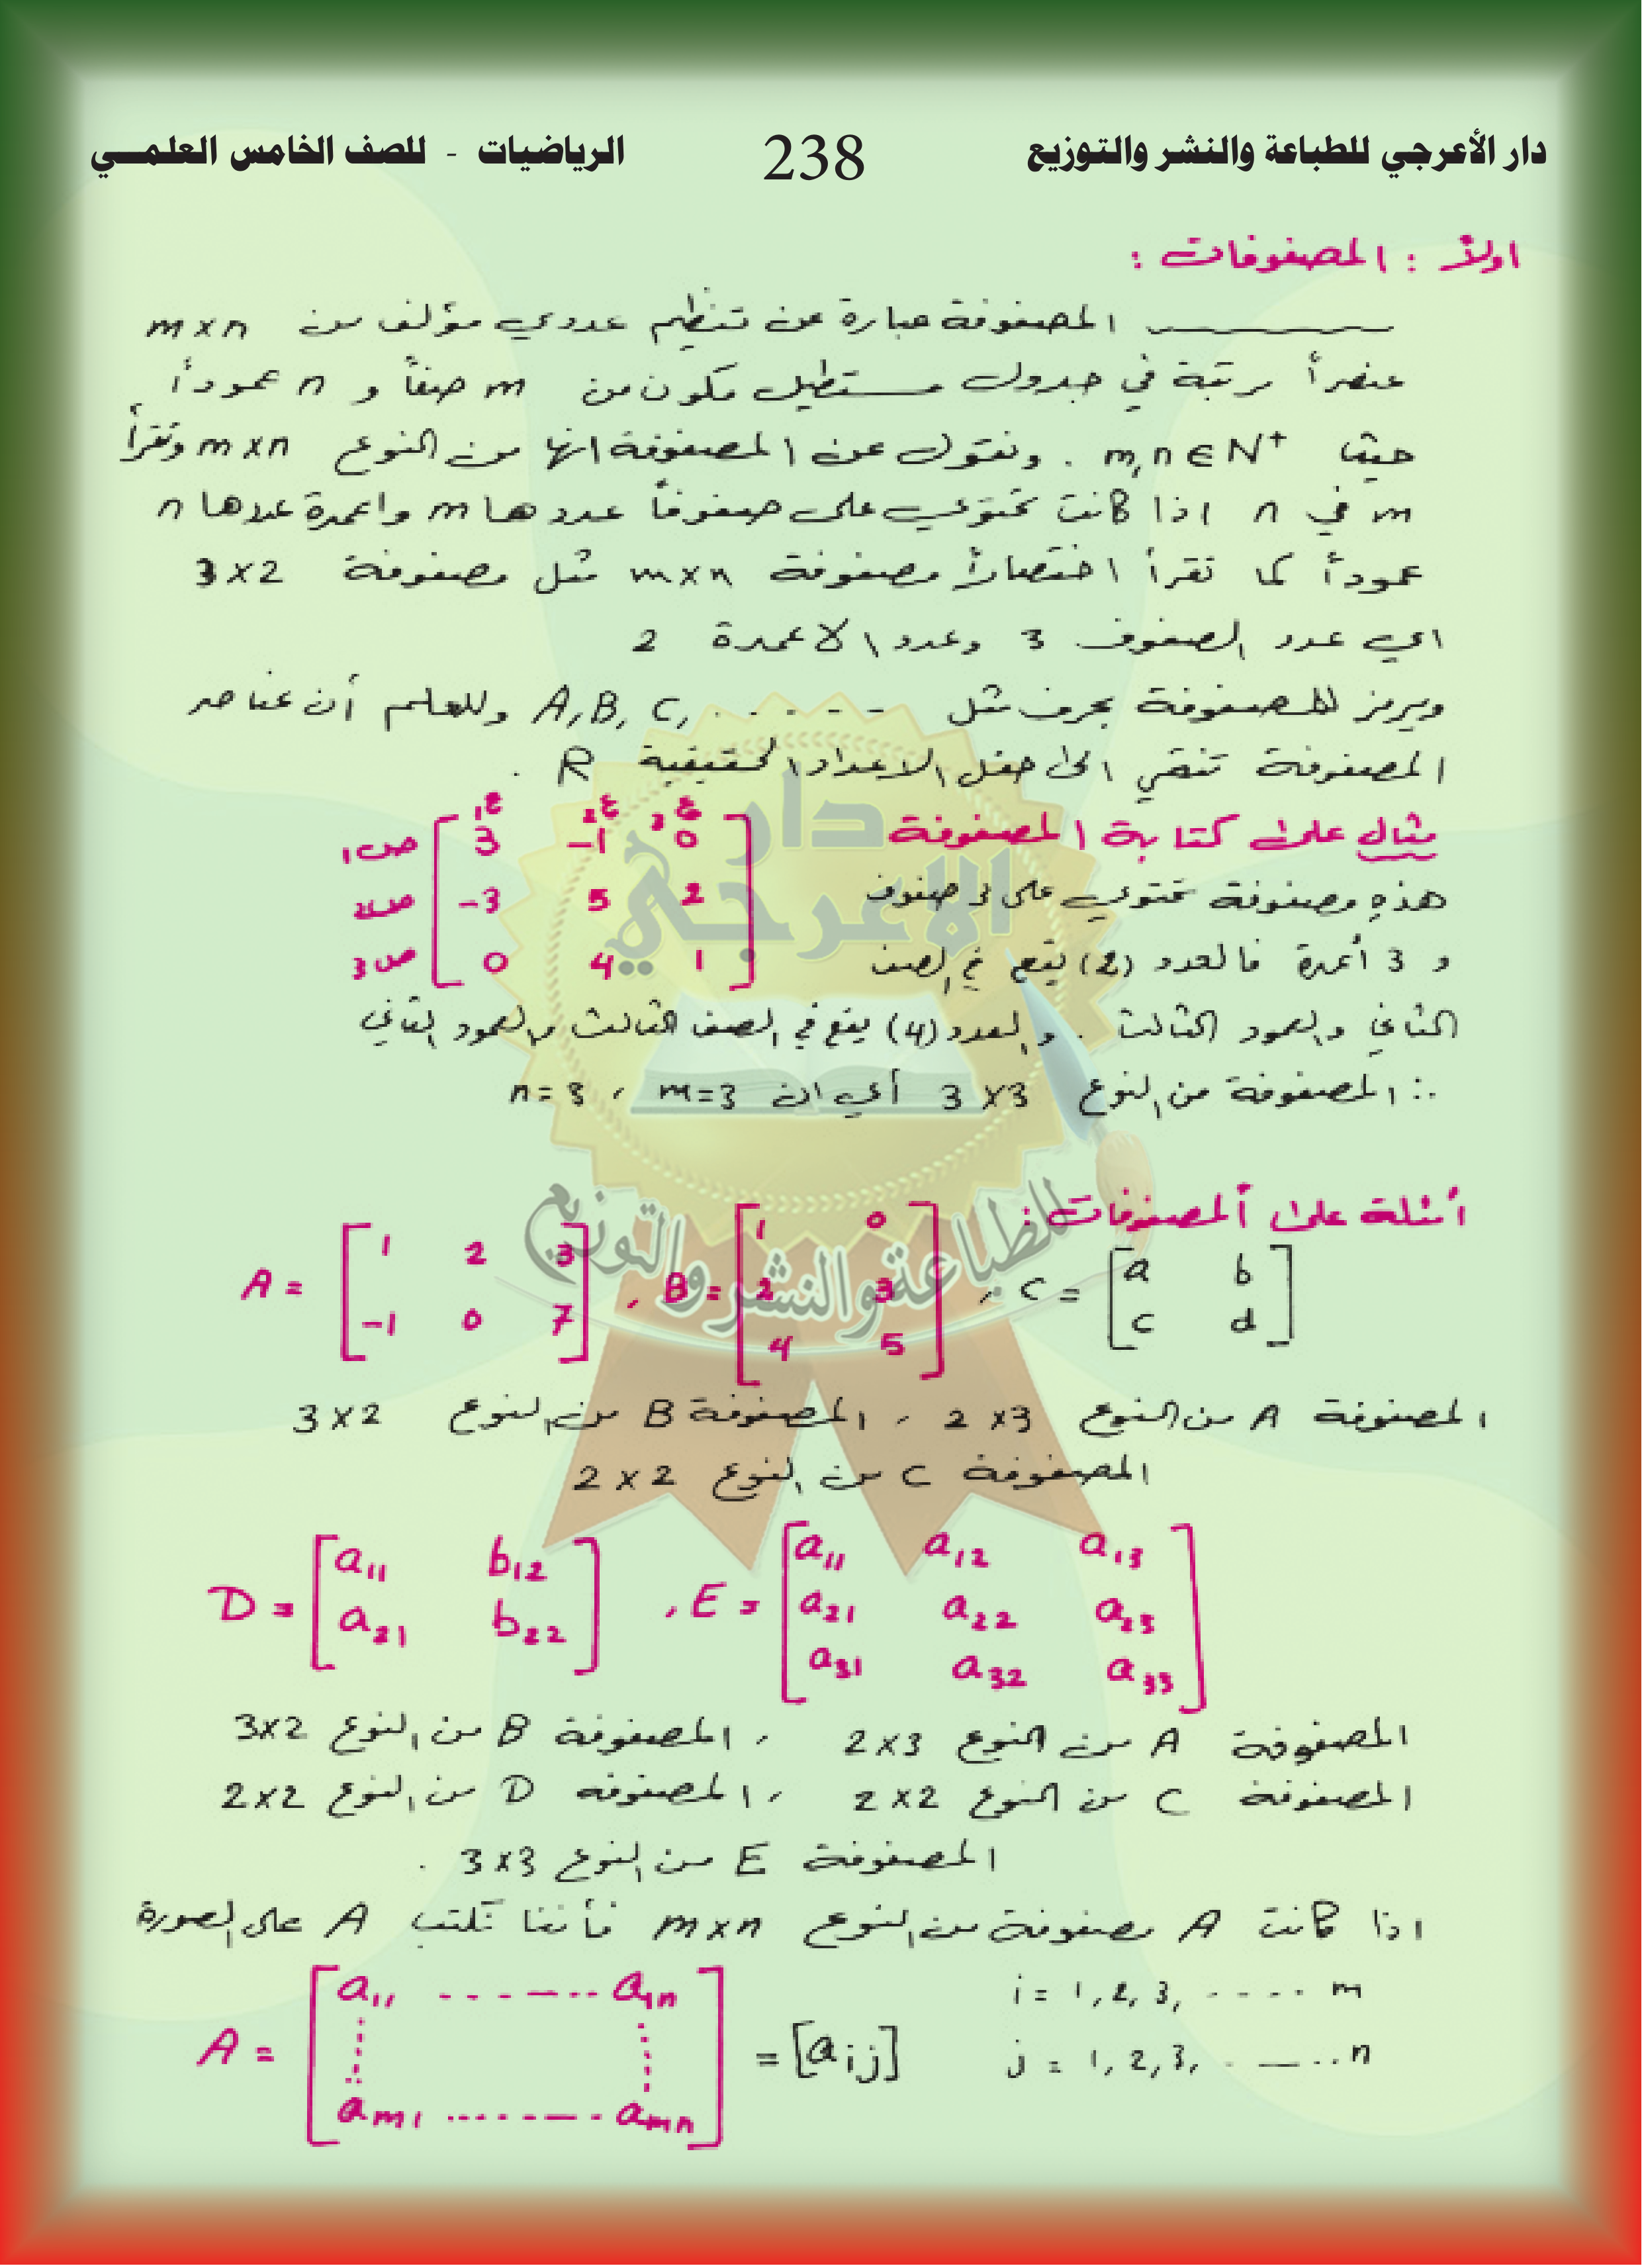 دار الأعرجي للطباعة والنشر والتوزيع 238 الرياضيات - للصف الخامس العلمي
اولاً : المصفوفات :
المصفوفة عبارة عن تنظيم عددي مؤلف من m×n
عنصراً مرتبة في جدول مستطيل مكون من m صفاً و n عموداً
حيث m,n∈N⁺ . ونقول عن المصفوفة انها من النوع m×n وتقرأ
m في n اذا كانت تحتوي على صفوفاً عددها m واعمدة عددها n
عموداً كما تقرأ اختصاراً مصفوفة m×n مثل مصفوفة 3×2
اي عدد الصفوف 3 وعدد الاعمدة 2
ويرمز للمصفوفة بحرف مثل A, B, C, ------ وللعلم أن عناصر
المصفوفة تنتمي الى حقل الاعداد الحقيقية R .
مثال على كتابة المصفوفة
ع1 ع2 ع3
ص1 [ 3 -1 0 ]
هذه مصفوفة تحتوي على 3 صفوف
ص2 [ -3 5 2 ]
و 3 أعمدة فالعدد (2) يقع في الصف
ص3 [ 0 4 1 ]
الثاني والعمود الثالث . والعدد (4) يقع في الصف الثالث والعمود الثاني
∴ المصفوفة من النوع 3×3 أي ان m=3 ، n=3
أمثلة على المصفوفات :
A = [ 1 2 3
-1 0 7 ] , B = [ 1 0
2 3
4 5 ] , C = [ a b
c d ]
المصفوفة A من النوع 2×3 ، المصفوفة B من النوع 3×2
المصفوفة C من النوع 2×2
D = [ a₁₁ b₁₂
a₂₁ b₂₂ ] , E = [ a₁₁ a₁₂ a₁₃
a₂₁ a₂₂ a₂₃
a₃₁ a₃₂ a₃₃ ]
المصفوفة A من النوع 2×3 ، المصفوفة B من النوع 3×2
المصفوفة C من النوع 2×2 ، المصفوفه D من النوع 2×2
المصفوفة E من النوع 3×3 .
اذا كانت A مصفوفة من النوع m×n فأننا نكتب A على الصورة
A = [ a₁₁ -------- a₁ₙ
aₘ₁ -------- aₘₙ ] = [aᵢⱼ]
i = 1, 2, 3, ----- m
j = 1, 2, 3, ----- n
دار
الاعرجي
للطباعة والنشر والتوزيع